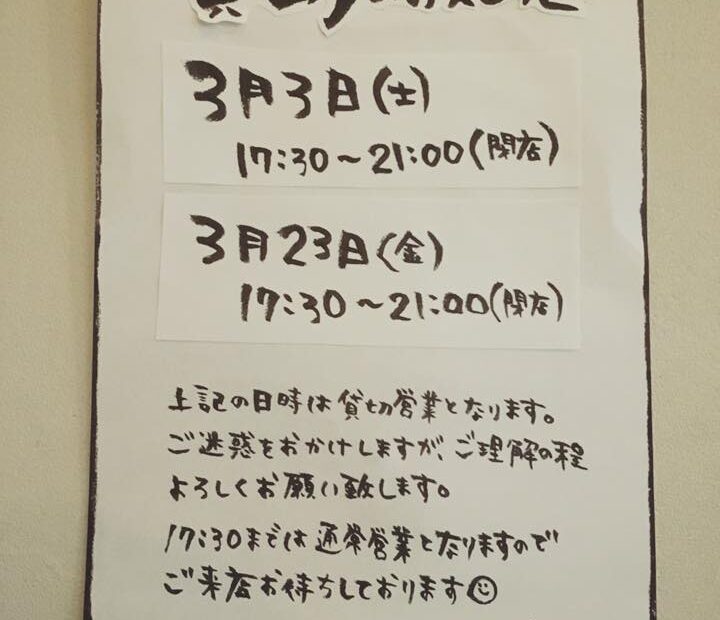 3月3日(土)
17:30～21:00(閉店)
3月23日(金)
17:30～21:00(閉店)
上記の日時は貸切営業となります。
ご迷惑をおかけしますが、ご理解の程
よろしくお願い致します。
17:30までは通常営業となりますので
ご来店お待ちしております☺